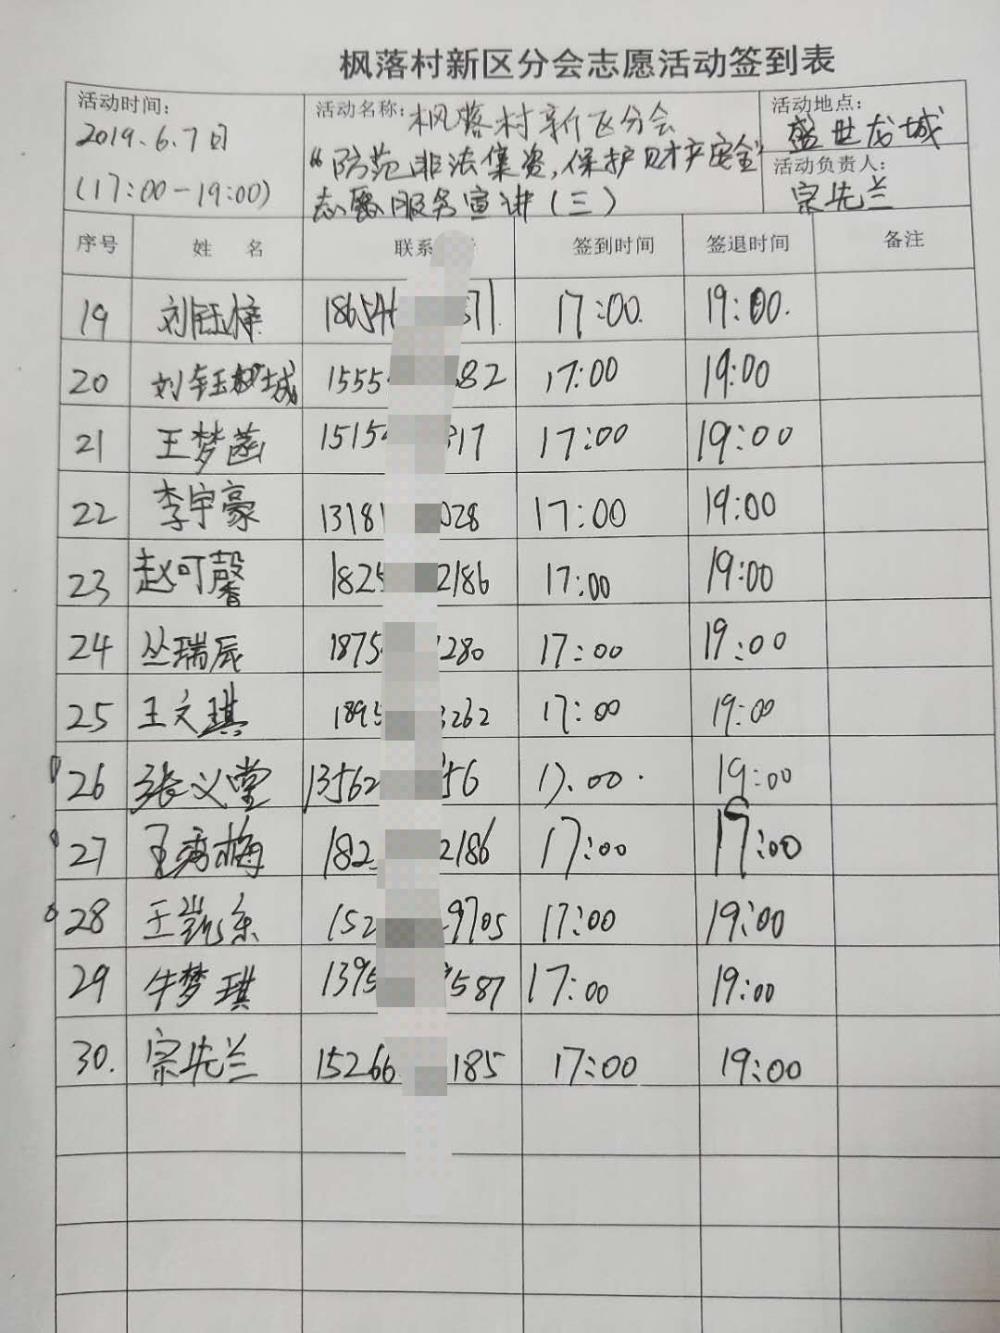 枫落村新区分会志愿活动签到表
活动时间:
2019.6.7日
(17:00-19:00)
活动名称: 枫落村新区分会
"防范非法集资,保护财产安全"
志愿服务宣讲(三)
活动地点:
盛世龙城
活动负责人:
宗先兰
序号 姓 名 联系 签到时间 签退时间 备注
19 刘钰梓 18654 571. 17:00. 19:00.
20 刘 城 1555 682 17:00 19:00
21 王梦菡 1515 17 17:00 19:00
22 李宇豪 1318 028 17:00 19:00
23 赵可馨 182 2186 17:00 19:00
24 丛瑞辰 1875 1280 17:00 19:00
25 王文琪 1895 3262 17:00 19:00
26 张义堂 13562 56 17.00. 19:00
27 王秀梅 182 2186 17:00 19:00
28 王凯东 152 9705 17:00 19:00
29 牛梦琪 1395 587 17:00 19:00
30. 宗先兰 15266 185 17:00 19:00